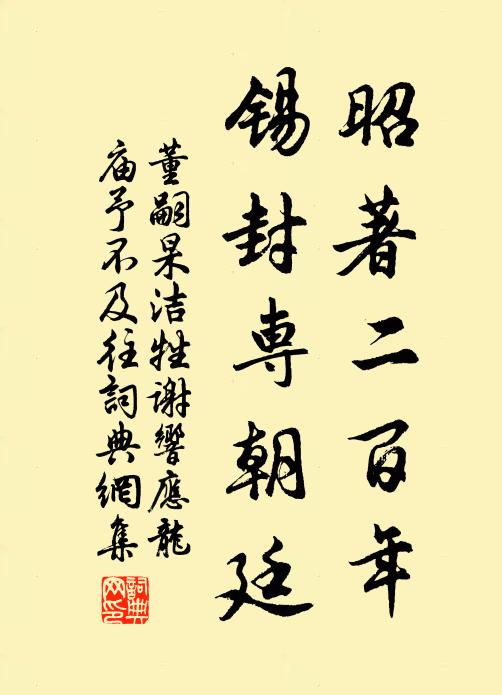 昭著二百年
錫封専朝廷
董嗣杲洁牲谢響應龍
庙予不及往詞典網集